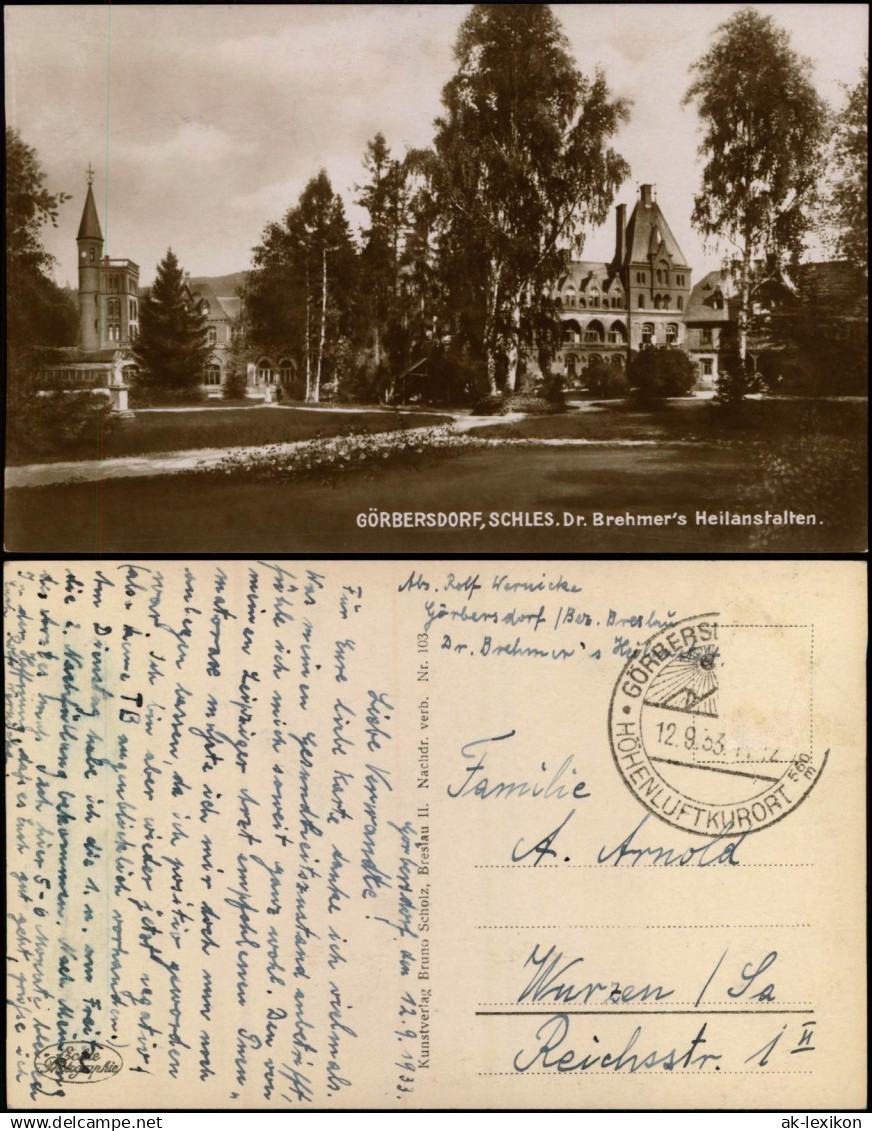 GÖRBERSDORF, SCHLES. Dr. Brehmer's Heilanstalten.
Abs. Rolf Wernicke
Görbersdorf / Bez. Breslau
Dr. Brehmer's
GÖRBERS
12.9.33
560 m
HÖHENLUFTKURORT
Familie
A. Arnold
Wurzen / Sa
Reichsstr. 1 II
Kunstverlag Bruno Scholz, Breslau II. Nachdr. verb. Nr. 103
Görbersdorf, den 12.9.1933.
Liebe Verwandte!
Für Eure liebe Karte danke ich vielmals.
Was meinen Gesundheitszustand anbetrifft,
fühle ich mich soweit ganz wohl. Den von
meinem Leipziger Arzt empfohlenen Pneu„
matorax mußte ich mir doch nun noch
anlegen lassen, da ich positiv geworden
war. Ich bin aber wieder jetzt negativ!
(also keine TB augenblicklich vorhanden.)
Am Dienstag habe ich die 1. u. am Freitag
die 2. Nachfüllung bekommen. Nach Meinung
des Arztes muß ich hier 5-6 Monate bleiben
In der Hoffnung, daß es Euch gut geht, grüße ich
Echte Photographie
ak-lexikon